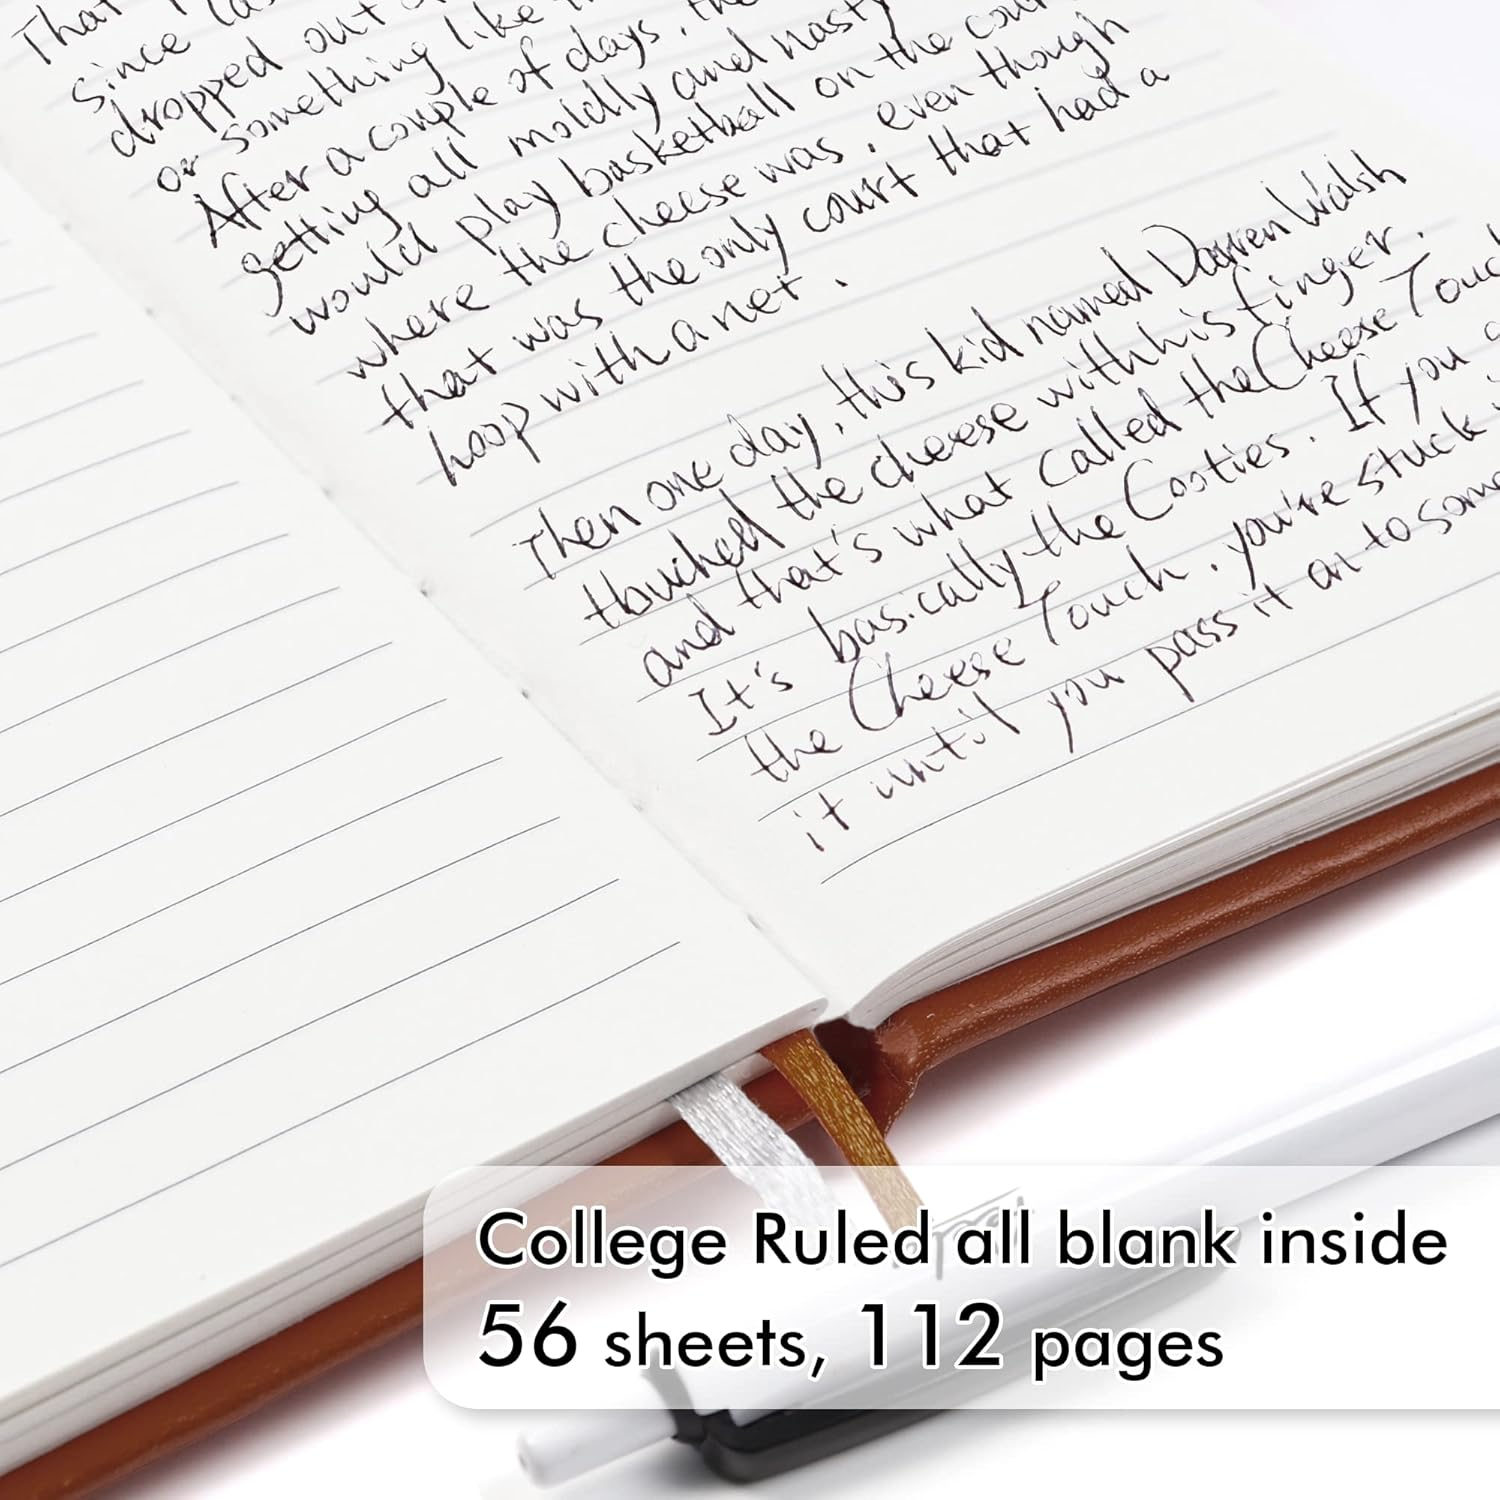 That
since
dropped out
or something like
After a couple of days, the
getting all moldly and nasty
would play basketball on the cour
where the cheese was, even though
that was the only court that had a
hoop with a net.
Then one day, this kid named Darren Walsh
touched the cheese with his finger.
and that's what called the Cheese Touch
It's basically the Cooties. If you g
the Cheese Touch, you're stuck
it until you pass it on to some
College Ruled all blank inside
56 sheets, 112 pages